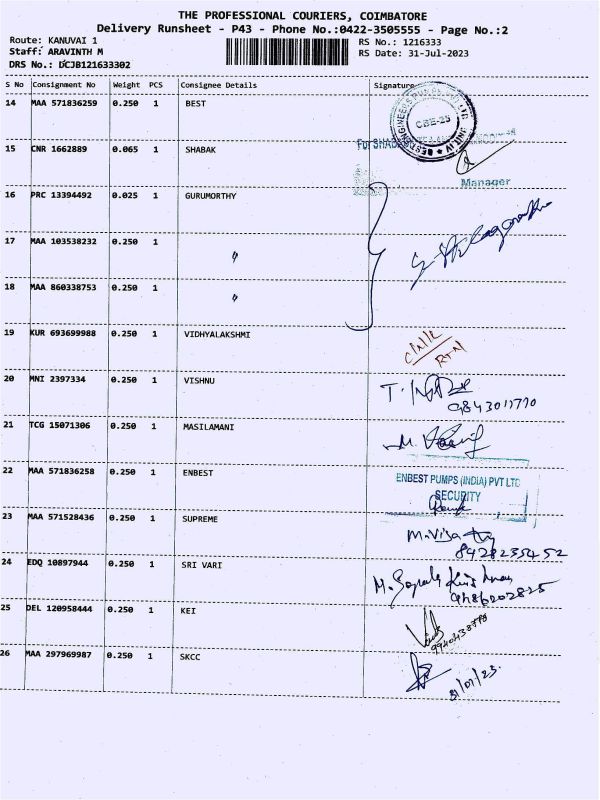 THE PROFESSIONAL COURIERS, COIMBATORE
Delivery Runsheet - P43 - Phone No.:0422-3505555 - Page No.:2
Route: KANUVAI 1
RS No.: 1216333
Staff: ARAVINTH M
RS Date: 31-Jul-2023
DRS No.: DCJB121633302
S No Consignment No Weight PCS Consignee Details Signature
14 MAA 571836259 0.250 1 BEST
CBE-25
15 CNR 1662889 0.065 1 SHABAK
For SHABA
Manager
16 PRC 13394492 0.025 1 GURUMORTHY
17 MAA 103538232 0.250 1 〃
18 MAA 860338753 0.250 1 〃
19 KUR 693699988 0.250 1 VIDHYALAKSHMI
RTN
20 MNI 2397334 0.250 1 VISHNU
9843011770
21 TCG 15071306 0.250 1 MASILAMANI
22 MAA 571836258 0.250 1 ENBEST
ENBEST PUMPS (INDIA) PVT LTD
SECURITY
23 MAA 571528436 0.250 1 SUPREME
8428235452
24 EDQ 10897944 0.250 1 SRI VARI
25 DEL 120958444 0.250 1 KEI
26 MAA 297969987 0.250 1 SKCC
31/07/23.